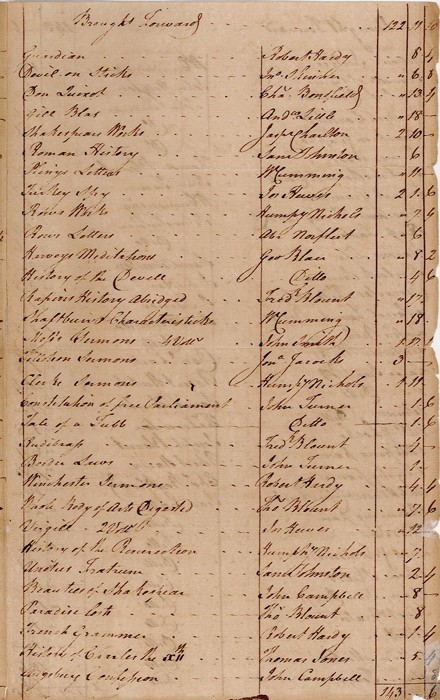 Brought Forward 122 11
Guardian Robert Hardy 8 4
Devil on Sticks Jno. 6 8
Don Quixot Chas. Bonfield 13 4
Gill Blas Andw. Little 18
Shakespears Works Jaspr Charlton 2 10
Roman History Saml Johnston 6
Plinys Letters Wm Cumming 11
Turkey Spy Jos Hewes 2 1 6
Rows Works Humpy Nichols 7 4
Rows Letters Abr Norfleet 6
Herveys Meditations Geo Blair 8 2
History of the Devell Ditto 4 6
Rapins History Abridged Fredk Blount 17
Shaftburys Characteristicks Wm Cumming 18
Sermons 4 Voll John Smith 1 17
Tillitson Sermons Jona. Jacocks 3
Clerke Sermons Humpy Nichols 1 11
Constitution of free Parliament John Turner 1 6
Tale of a Tubb Ditto 1 6
Hudibrass Fredk Blount 4
Border Laws John Turner 1
Winchester Sermons Robert Hardy 4 4
Whole Body of Arts Digested Thos. Blount 7 6
Virgils 2 Voll Jos Hewes 12
History of the Humphry Nichols 7
Fratrum Saml Johnston 2 4
Beauties of Shakespear John Campbell 8
Paradise Lost Thos. Blount 8
French Grammer Robert Hardy 1 4
History of Charles the XIIth Thomas Jones 5 4
Confession John Campbell
143